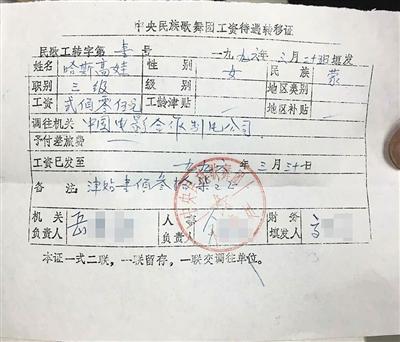 中央民族歌舞团工资待遇转移证
民歌工转字第 号 一九九六年三月二十一日填发
姓名 哈斯高娃 性别 女 民族 蒙
职别 三级 级别 地区类别
工资 贰佰零 元 工龄津贴 地区补贴
调往机关 中国电影合作制片公司
予付差旅费
工资已发至 一九九六年三月三十日
备注: 津贴壹佰叁拾柒元
机关负责人 岳 人事负责人 财务填发人 高
本证一式二联,一联留存,一联交调往单位。